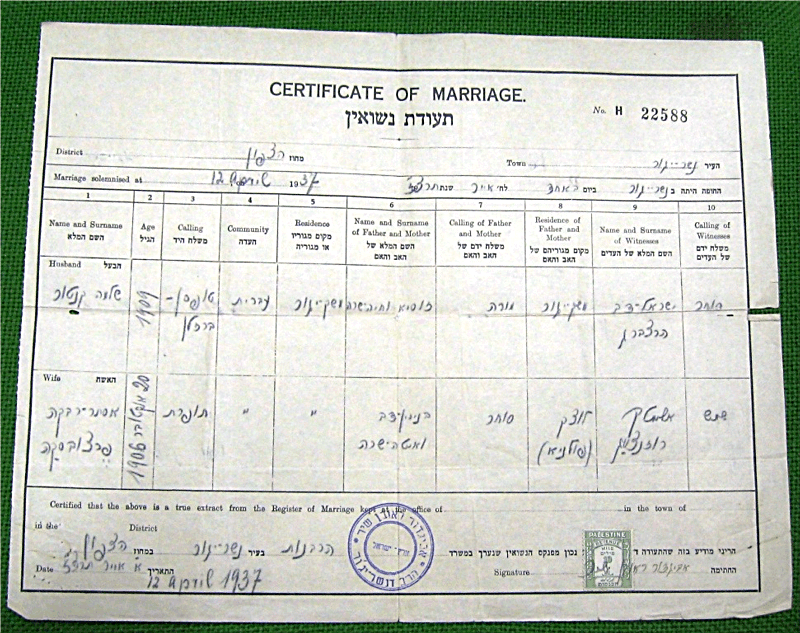 CERTIFICATE OF MARRIAGE.
תעודת נשואין
No. H 22588
District הצפון מחוז Town נשר-יגור העיר
Marriage solemnised at 12 April 1937 החופה היתה ב נשר-יגור ביום לח' אייר שנת תרצ"ז
1 2 3 4 5 6 7 8 9 10
Name and Surname השם המלא
Age הגיל
Calling משלח היד
Community העדה
Residence מקום מגוריו או מגוריה
Name and Surname of Father and Mother השם המלא של האב והאם
Calling of Father and Mother משלח ידם של האב והאם
Residence of Father and Mother מקום מגוריהם של האב והאם
Name and Surname of Witnesses השם המלא של העדים
Calling of Witnesses משלח ידם של העדים
Husband הבעל
שלמה קנטור
1909
עברית
מורה
ישראל-דב הרצברג
סוחר
Wife האשה
אסתר-רבקה
20 אוקטובר 1906
תופרת
״
״
סוחר
לוצק (פולניא)
שמש
Certified that the above is a true extract from the Register of Marriage kept at the office of in the town of
in the District
הריני מודיע בזה שהתעודה ד נכון מפנקס הנשואין שנערך במשרד
הרבנות בעיר נשר-יגור במחוז הצפון
Date א אייר תרצ"ז התאריך Signature החתימה
12 April 1937
ארץ-ישראל
PALESTINE